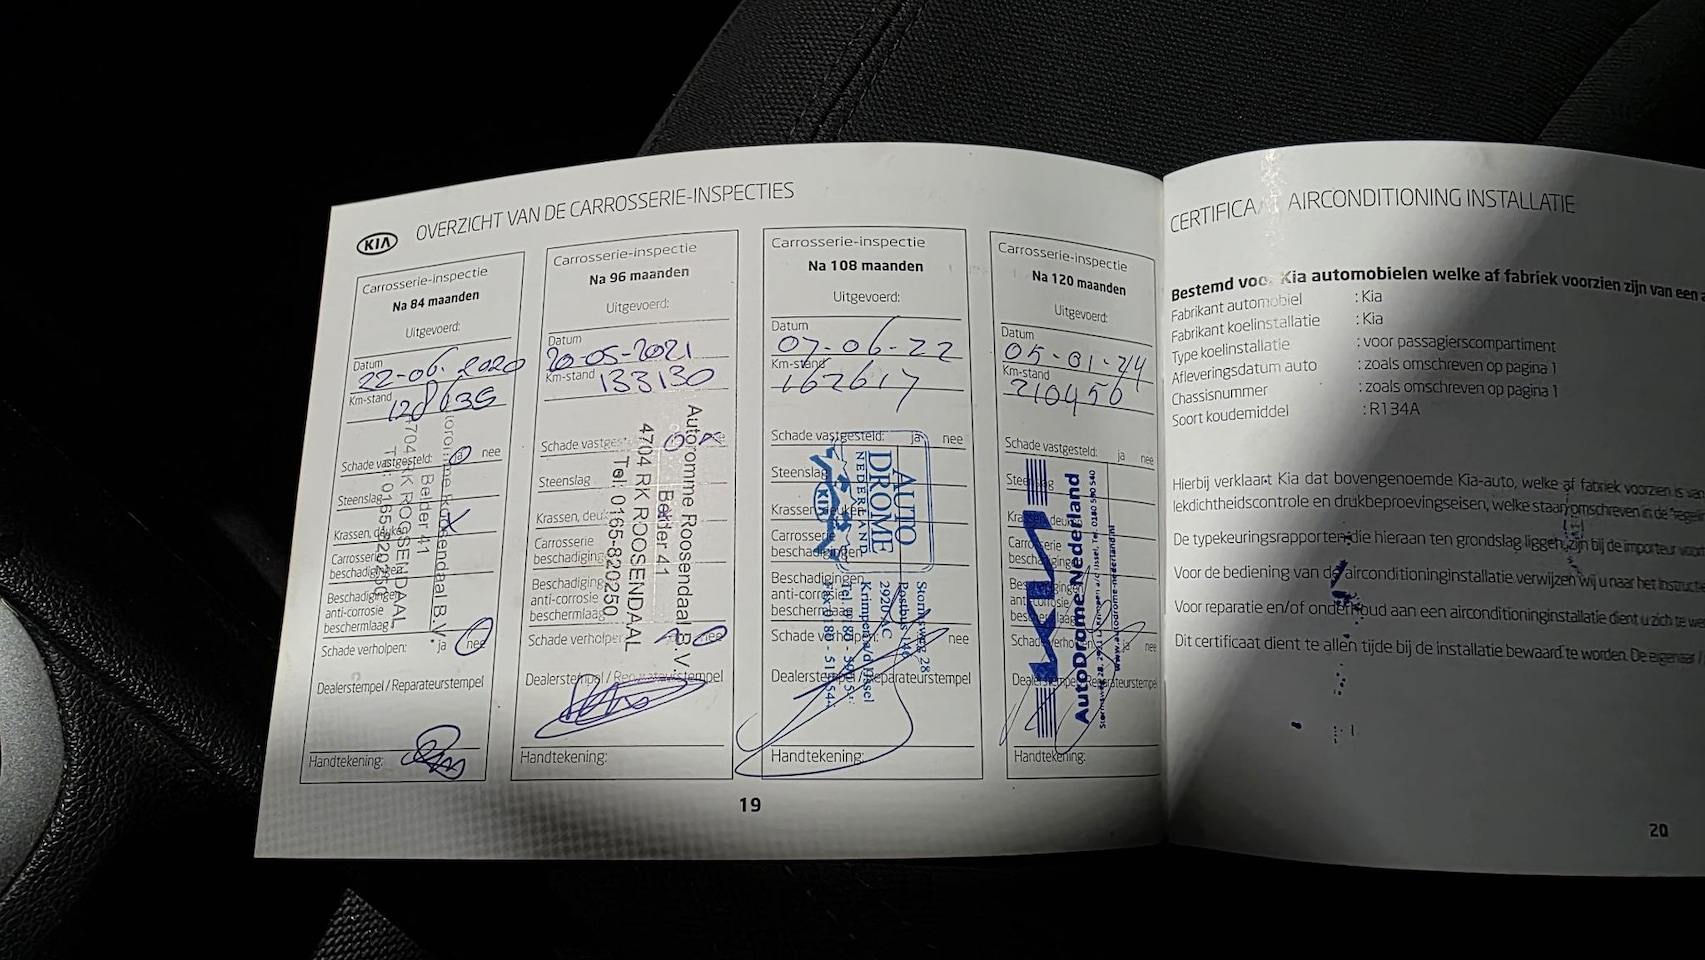 KIA
OVERZICHT VAN DE CARROSSERIE-INSPECTIES
Carrosserie-inspectie
Na 84 maanden
Uitgevoerd:
Datum
22-06-2020
Km-stand
Schade vastgesteld: ja nee
Steenslag
Krassen, deuken
Carrosserie
beschadigingen
Beschadigingen
anti-corrosie
beschermlaag
Schade verholpen: ja nee
Dealerstempel / Reparateurstempel
Handtekening:
Belder 41
4704 RK ROOSENDAAL
Carrosserie-inspectie
Na 96 maanden
Uitgevoerd:
Datum
20-05-2021
Km-stand 133130
Schade vastgesteld:
Steenslag
Krassen, deuken
Carrosserie
beschadigingen
Beschadigingen
anti-corrosie
beschermlaag
Schade verholpen: nee
Dealerstempel / Reparateurstempel
Handtekening:
Autoromme Roosendaal B.V.
Belder 41
4704 RK ROOSENDAAL
Tel: 0165-820250
Carrosserie-inspectie
Na 108 maanden
Uitgevoerd:
Datum
07-06-22
Km-stand
162617
Schade vastgesteld: ja nee
Steenslag
Krassen, deuken
Carrosserie
beschadigingen
Beschadigingen
anti-corrosie
beschermlaag
Schade verholpen: nee
Dealerstempel / Reparateurstempel
Handtekening:
AUTO
DROME
NEDERLAND
KIA
Stormsweg 28
Postbus 146
2920 AC
Krimpen a/d IJssel
Carrosserie-inspectie
Na 120 maanden
Uitgevoerd:
Datum
05-01-24
Km-stand
210456
Schade vastgesteld: ja nee
Carrosserie
beschadigingen
Schade verholpen: ja nee
Dealerstempel / Reparateurstempel
Handtekening:
KIA
AutoDrome Nederland
www.autodrome-nederland.nl
19
CERTIFICAAT AIRCONDITIONING INSTALLATIE
Bestemd voor Kia automobielen welke af fabriek voorzien zijn van een
Fabrikant automobiel : Kia
Fabrikant koelinstallatie : Kia
Type koelinstallatie : voor passagierscompartiment
Afleveringsdatum auto : zoals omschreven op pagina 1
Chassisnummer : zoals omschreven op pagina 1
Soort koudemiddel : R134A
Hierbij verklaart Kia dat bovengenoemde Kia-auto, welke af fabriek voorzien is van
lekdichtheidscontrole en drukbeproevingseisen, welke staan omschreven in de
De typekeuringsrapporten die hieraan ten grondslag liggen, zijn bij de importeur
Voor de bediening van de airconditioninginstallatie verwijzen wij u naar het
Voor reparatie en/of onderhoud aan een airconditioninginstallatie dient u zich te
Dit certificaat dient te allen tijde bij de installatie bewaard te worden. De eigenaar /
20